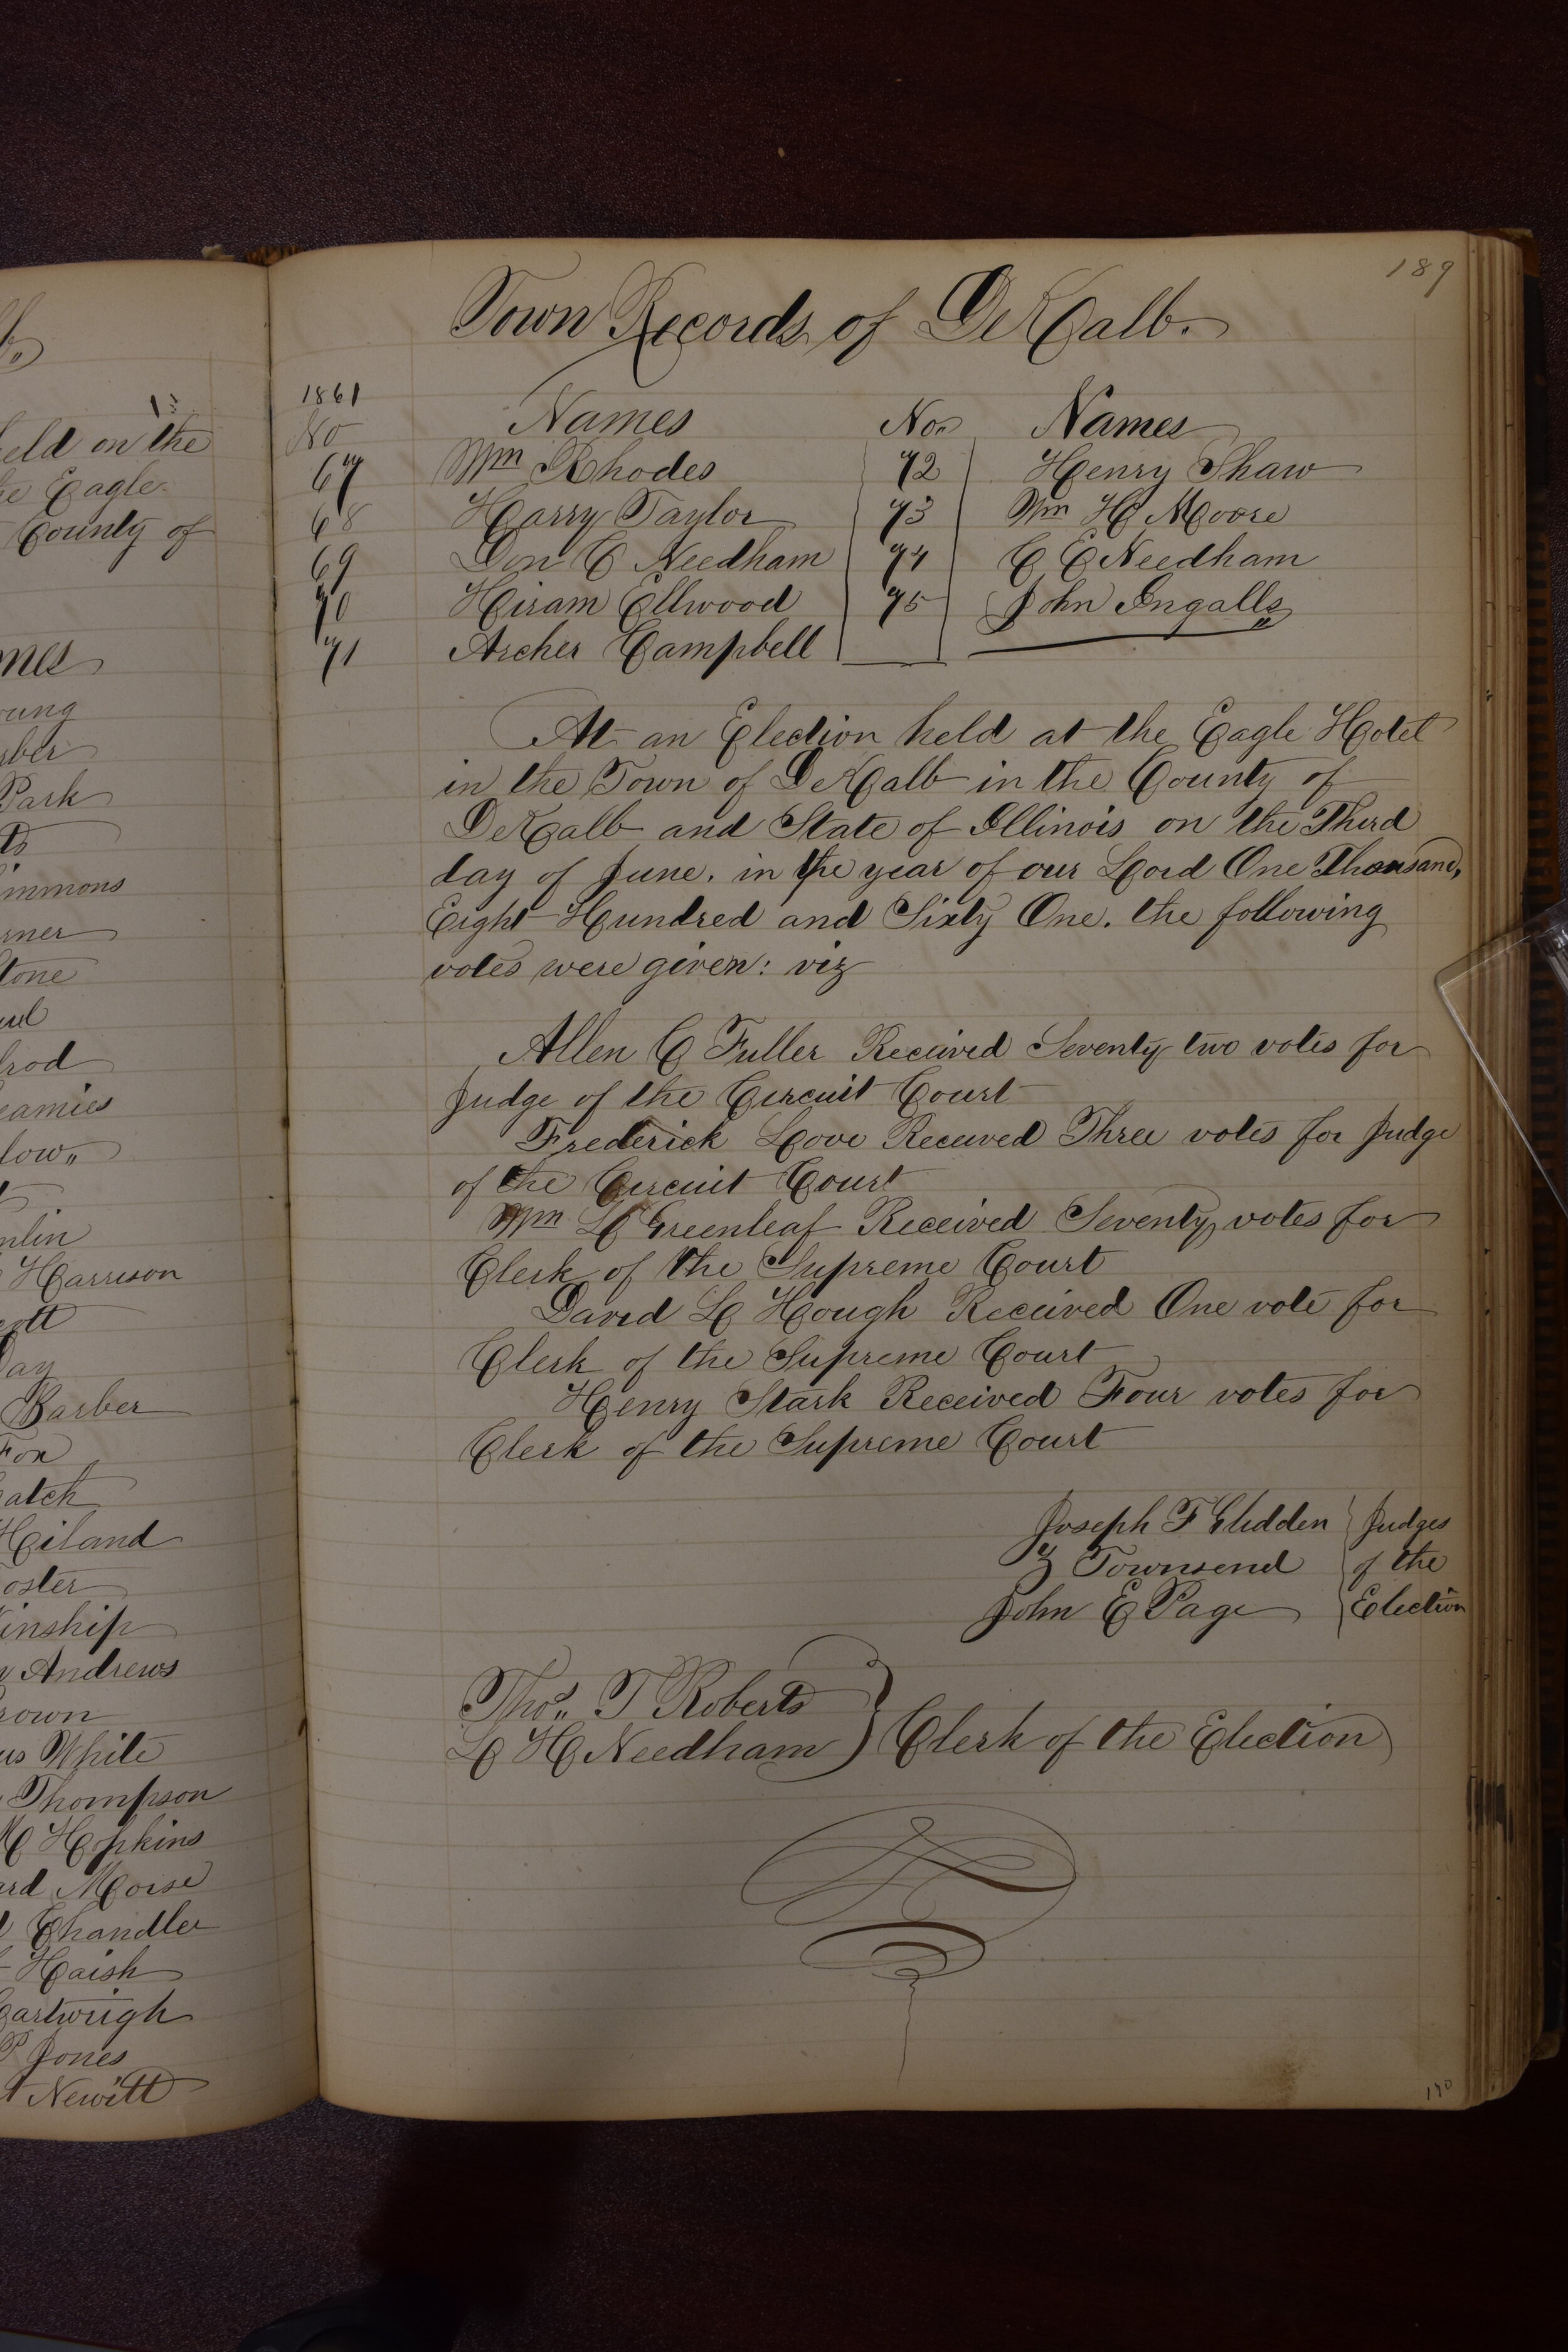 189
Town Records of DeKalb.
1861
No Names Nos Names
67 Wm Rhodes 72 Henry Shaw
68 Harry Taylor 73 Wm H Moore
69 Don C Needham 74 C E Needham
70 Hiram Ellwood 75 John Ingalls
71 Archer Campbell
At an Election held at the Eagle Hotel
in the Town of DeKalb in the County of
DeKalb and State of Illinois on the Third
day of June. in the year of our Lord One Thousand,
Eight Hundred and Sixty One. the following
votes were given: viz
Allen C Fuller Received Seventy two votes for
Judge of the Circuit Court
Frederick Love Received Three votes for Judge
of the Circuit Court
Wm L Greenleaf Received Seventy votes for
Clerk of the Supreme Court
David L Hough Received One vote for
Clerk of the Supreme Court
Henry Stark Received Four votes for
Clerk of the Supreme Court
Joseph F Glidden Judges
Z Townsend of the
John E Page Election
Thos. T Roberts
L H Needham Clerk of the Election
190
b.
held on the
Eagle
County of
Park
Harrison
Barber
Andrews
White
Thompson
Hopkins
Morse
Chandler
Haish
Cartwrigh
P Jones
Newitt